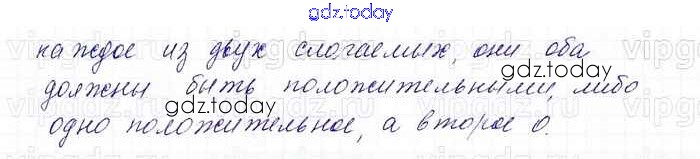 gdz.today
каждое из двух слогаемых, они оба
gdz.today
должны быть положительными, либо
одно положительное, а второе 0.
gdz.today